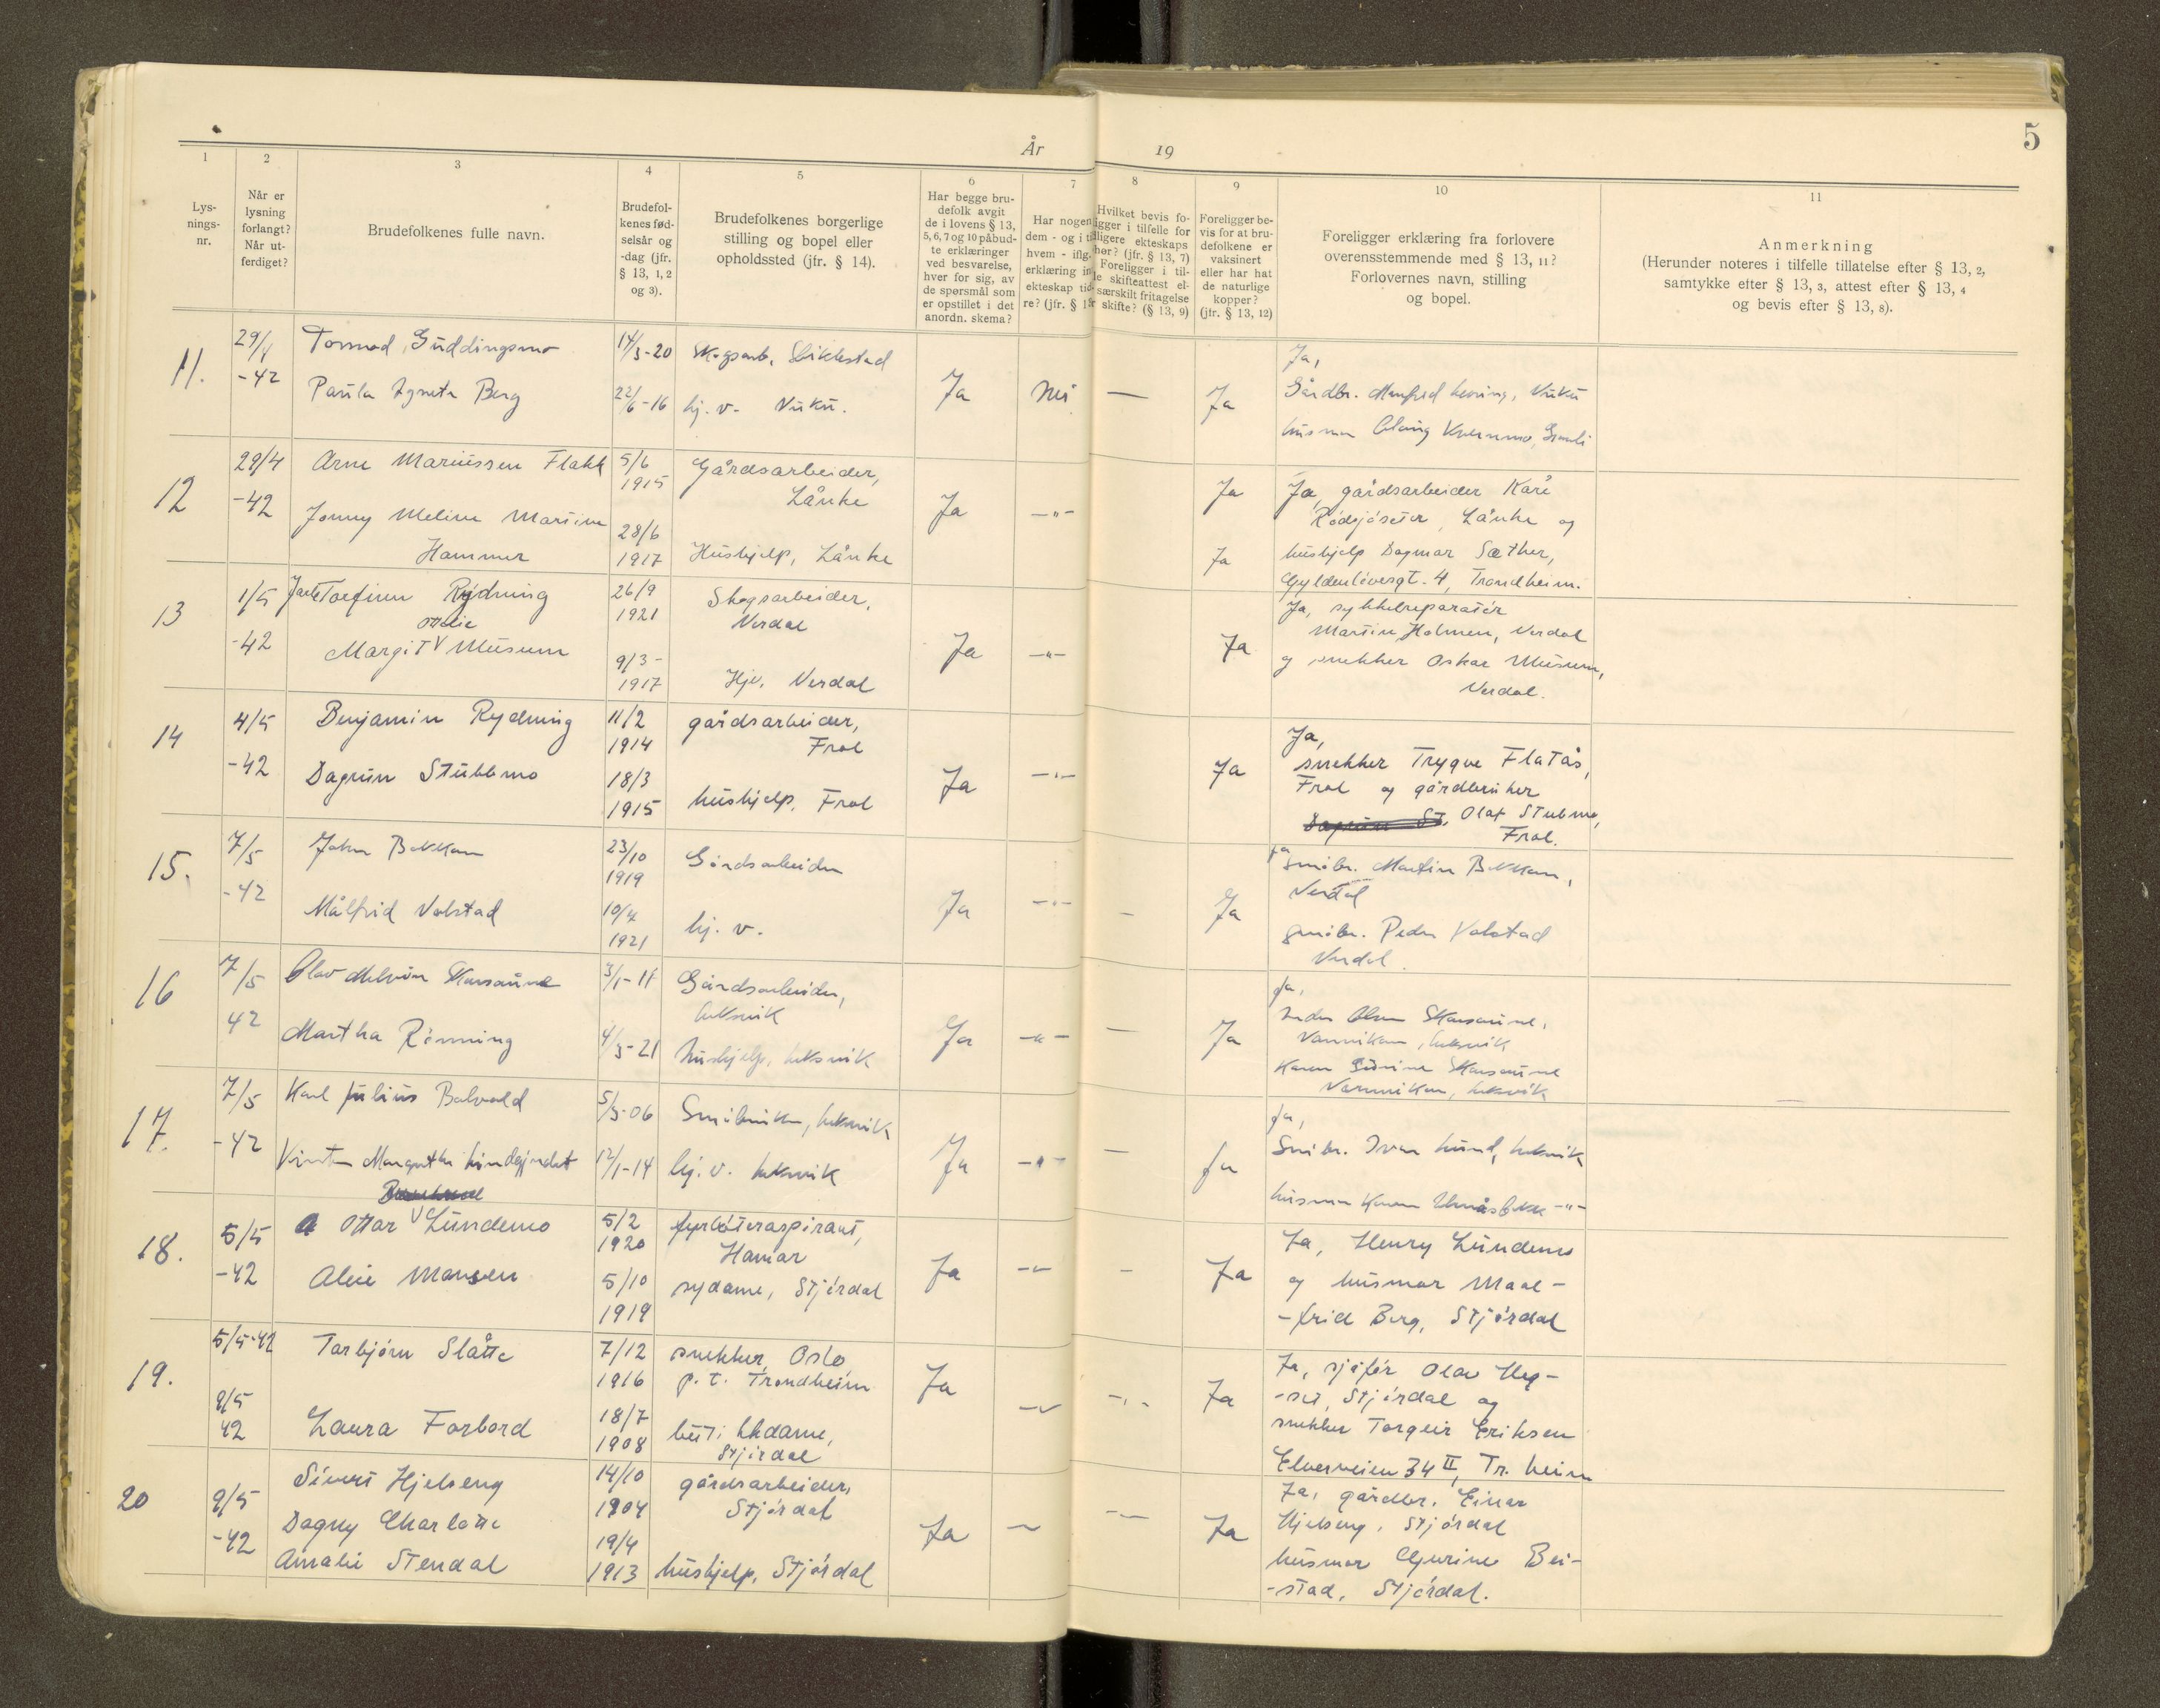 5
År 19
1
2
3
4
5
6
7
8
9
10
11
Lys-
nings-
nr.
Når er
lysning
forlangt?
Når ut-
ferdiget?
Brudefolkenes fulle navn.
Brudefol-
kenes fød-
selsår og
-dag (jfr.
§ 13, 1, 2
og 3).
Brudefolkenes borgerlige
stilling og bopel eller
opholdssted (jfr. § 14).
Har begge bru-
defolk avgit
de i lovens § 13,
5, 6, 7 og 10 påbud-
te erklæringer
ved besvarelse,
hver for sig, av
de spørsmål som
er opstillet i det
anordn. skema?
Har nogen
dem - og i ti
hvem - iflg.
erklæring in
ekteskap tid
re? (jfr. § 1
Hvilket bevis fo-
ligger i tilfelle for
tidligere ekteskaps
ophør? (jfr. § 13, 7)
Foreligger i til-
le skifteattest el-
særskilt fritagelse
skifte? (§ 13, 9)
Foreligger be-
vis for at bru-
defolkene er
vaksinert
eller har hat
de naturlige
kopper?
(jfr. § 13, 12)
Foreligger erklæring fra forlovere
overensstemmende med § 13, 11?
Forlovernes navn, stilling
og bopel.
Anmerkning
(Herunder noteres i tilfelle tillatelse efter § 13, 2,
samtykke efter § 13, 3, attest efter § 13, 4
og bevis efter § 13, 8).
11.
29/4
-42
Tormod Guddingsmo
Paula Agneta Berg
14/3-20
22/6-16
Skogsarb. Stiklestad
hj. v. Vuku.
Ja
Nei
—
Ja
Ja,
Gårdbr. Manfred Levring, Vuku
12
29/4
-42
Arne Mariussen Flakk
Jonny Meline Martine
Hammer
5/6
1915
28/6
1917
Gårdsarbeider,
Lånke
Hushjelp, Lånke
Ja
—"—
Ja
Ja
Ja, gårdsarbeider Kåre
Rødsjøseter, Lånke og
hushjelp Dagmar Sæther,
Gyldenløvesgt. 4, Trondheim.
13
1/5
-42
Jarle Torfinn Rydning
Ottelie
Margit V Musum
26/9
1921
9/3-
1917
Skogsarbeider,
Verdal
Hjv. Verdal
Ja
—"—
Ja
Ja, sykkelreparatør
Martin Holmen, Verdal
og snekker Oskar Musum,
Verdal.
14
4/5
-42
Benjamin Rydning
Dagrun Stubbmo
11/2
1914
18/3
1915
gårdsarbeider,
Frol
hushjelp, Frol
Ja
—"—
Ja
Ja,
snekker Trygve Flatås,
Frol og gårdbruker
Dagrun St. Olaf Stubmo,
Frol.
15.
7/5
-42
John Bakkan
Målfrid Volstad
23/10
1919
10/4
1921
Gårdsarbeider
hj. v.
Ja
—"—
—
Ja
Ja
småbr. Martin Bakkan,
Verdal
småbr. Peder Volstad
Verdal
16
7/5
42
Olav Melvin Skarsaune
Martha Rønning
3/1-11
4/3-21
Gårdsarbeider,
Leksvik
hushjelp, Leksvik
Ja
—"—
—
Ja
Ja,
Peder Olsen Skarsaune,
Vanvikan, Leksvik
Karen Skarsaune
Vanvikan, Leksvik
17.
7/5
-42
Karl Julius Bolvald
5/3-06
12/1-14
Småbruker, Leksvik
hj. v. Leksvik
Ja
—"—
—
Ja
Ja,
Småbr. Ivar Lund, Leksvik
18.
5/5
-42
Ottar V Lundemo
Alice Monsen
5/2
1920
5/10
1919
fyrbøteraspirant,
Hamar
sydame, Stjørdal
Ja
—"—
—
Ja
Ja, Henry Lundemo
og husmor Maal-
-frid Berg, Stjørdal
19.
5/5-42
9/5
42
Torbjørn Slåtte
Laura Forbord
7/12
1916
18/7
1908
snekker, Oslo
p. t. Trondheim
butikkdame,
Stjørdal
Ja
—"—
—"—
Ja
Ja, sjåfør Olav Heg-
-set, Stjørdal og
snekker Torgeir Eriksen
Elverveien 34 II, Tr. heim
20
9/5
-42
Sivert Hjelseng
Dagny Charlotte
Amalie Stendal
14/10
1904
19/4
1913
gårdsarbeider,
Stjørdal
hushjelp, Stjørdal
Ja
—
—"—
Ja
Ja, gårdbr. Einar
Hjelseng, Stjørdal
husmor Gurine Bei-
-stad, Stjørdal.